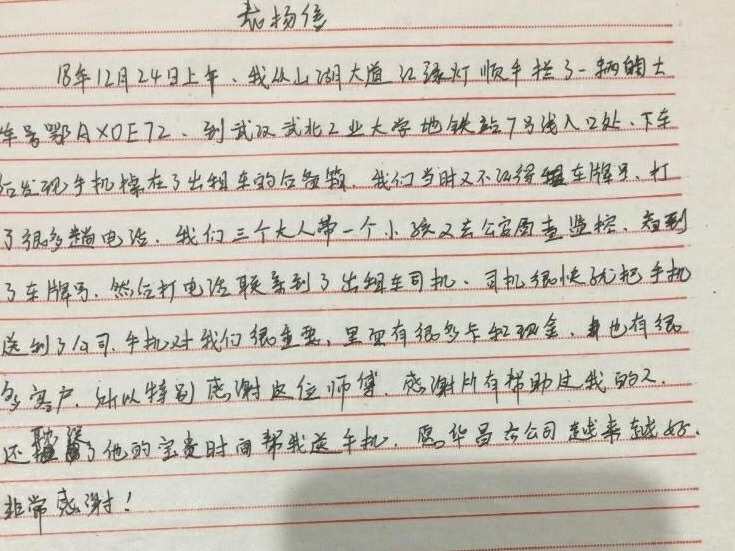 表扬信
18年12月24日上午、我从山湖大道红绿灯顺手拦了一辆的士
车号鄂AX0E72、到武汉武北工业大学地铁站7号线入口处、下车
后发现手机掉在了出租车的后备箱、我们当时又不记得车牌号、打
了很多趟电话、我们三个大人带一个小孩又去公安局查监控、知到
了车牌号、然后打电话联系到了出租车司机、司机很快就把手机
送到了公司、手机对我们很重要、里面有很多卡和现金、也有很
多客户、所以特别感谢这位师傅、感谢所有帮助过我的人、
还耽误了他的宝贵时间帮我送手机、愿华昌公司越来越好、
非常感谢！